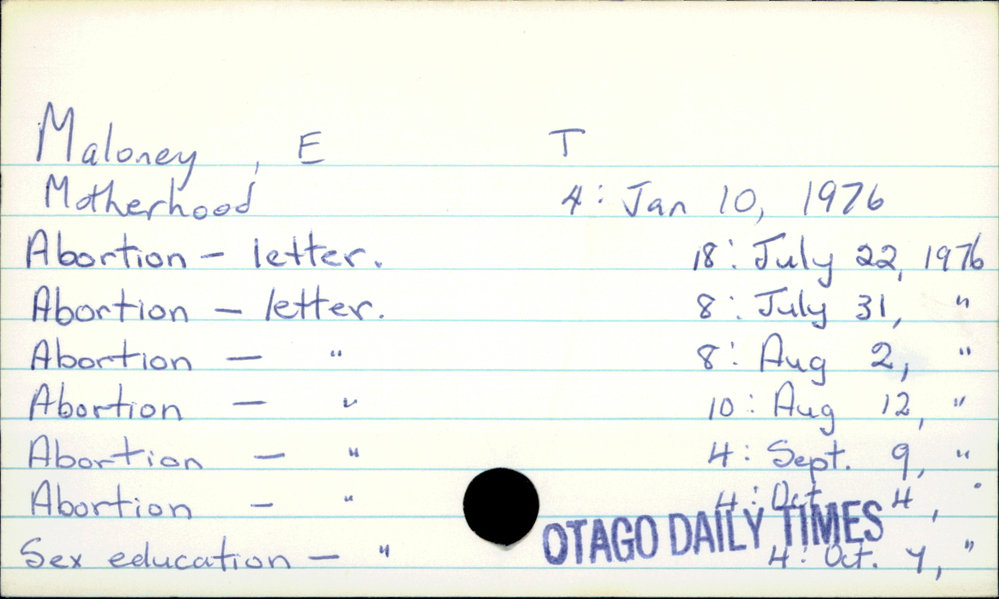 Maloney, E T
Motherhood 4: Jan 10, 1976
Abortion - letter. 18: July 22, 1976
Abortion - letter. 8: July 31, "
Abortion - " 8: Aug 2, "
Abortion - " 10: Aug 12, "
Abortion - " 4: Sept. 9, "
Abortion - " 4: Oct 4, "
OTAGO DAILY TIMES
Sex education - " 4: Oct. 7, "